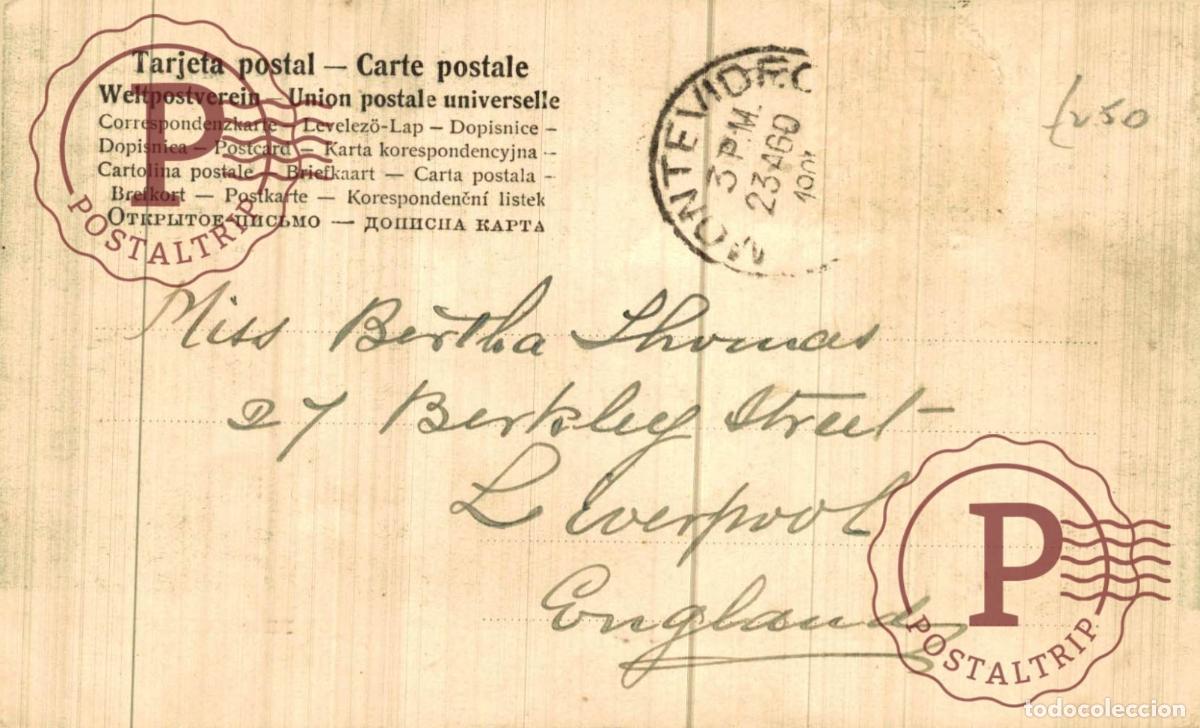 Tarjeta postal — Carte postale
Weltpostverein — Union postale universelle
Correspondenzkarte — Levelező-Lap — Dopisnice —
Dopisnica — Postcard — Karta korespondencyjna —
Cartolina postale — Briefkaart — Carta postala —
Brefkort — Postkarte — Korespondenční listek
Открытое письмо — дописна карта
MONTEVIDEO
3 P.M.
23 AGO
£250
Miss Bertha Thomas
27 Berkley Street
Liverpool
England
P
POSTALTRIP
P
POSTALTRIP
todocoleccion